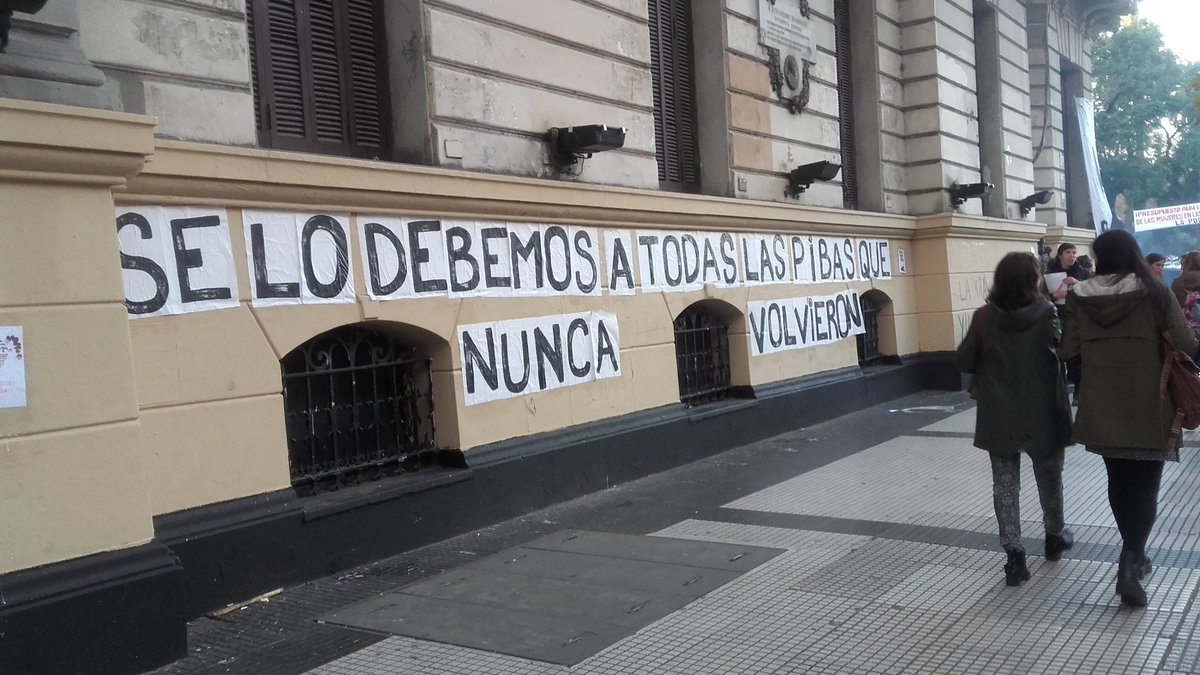 SE LO DEBEMOS A TODAS LAS PIBAS QUE
NUNCA VOLVIERON
¡PRESUPUESTO PARA L
DE LAS MUJERES EN